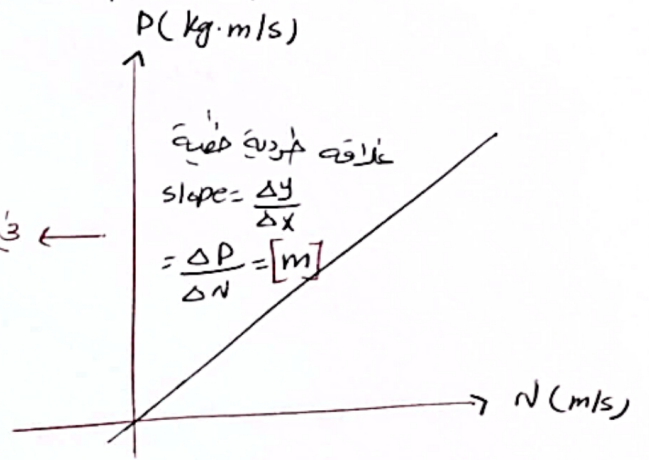 P( kg.m/s)
علاقة طردية خطية
slope = Δy/Δx
= ΔP/Δv = [m]
v (m/s)